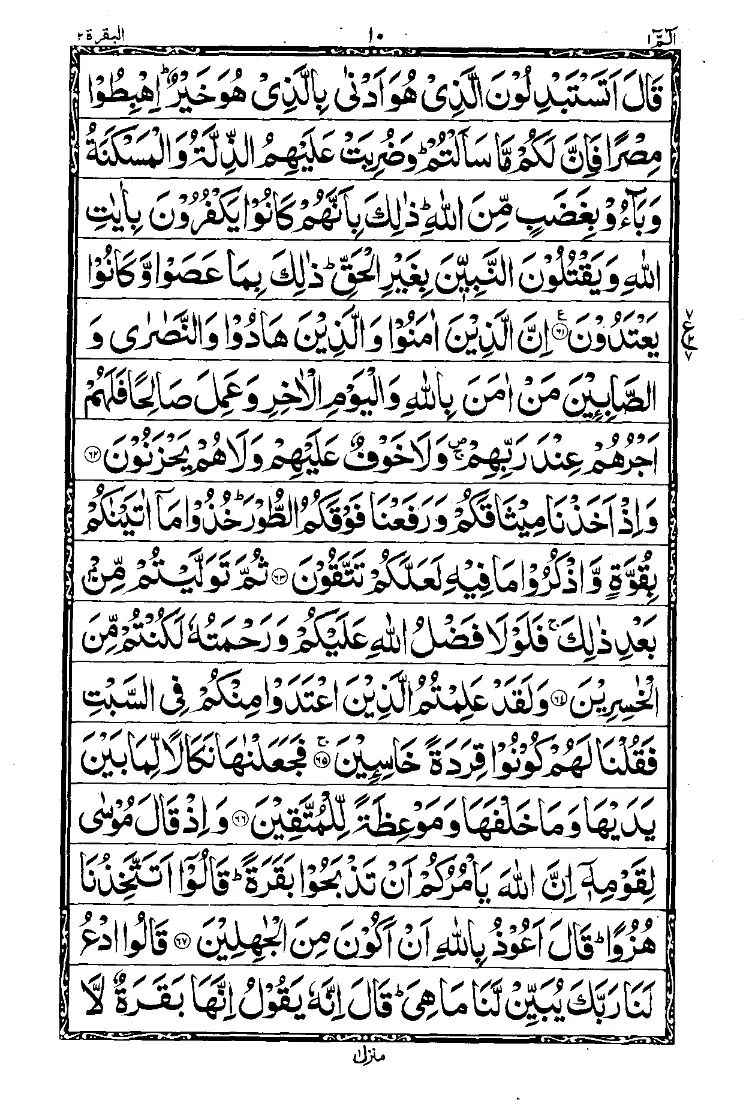 الٓمّٓ ١ ١٠ البقرة ٢
قَالَ اَتَسْتَبْدِلُوْنَ الَّذِىْ هُوَ اَدْنٰى بِالَّذِىْ هُوَ خَيْرٌ ؕ اِهْبِطُوْا
مِصْرًا فَاِنَّ لَكُمْ مَّا سَاَلْتُمْ ؕ وَضُرِبَتْ عَلَيْهِمُ الذِّلَّةُ وَالْمَسْكَنَةُ
وَبَآءُوْ بِغَضَبٍ مِّنَ اللّٰهِ ؕ ذٰلِكَ بِاَنَّهُمْ كَانُوْا يَكْفُرُوْنَ بِاٰيٰتِ
اللّٰهِ وَيَقْتُلُوْنَ النَّبِيّٖنَ بِغَيْرِ الْحَقِّ ؕ ذٰلِكَ بِمَا عَصَوْا وَّكَانُوْا
يَعْتَدُوْنَ ﴿٦١﴾ ع اِنَّ الَّذِيْنَ اٰمَنُوْا وَالَّذِيْنَ هَادُوْا وَالنَّصٰرٰى وَ
الصَّابِـِٕيْنَ مَنْ اٰمَنَ بِاللّٰهِ وَالْيَوْمِ الْاٰخِرِ وَعَمِلَ صَالِحًا فَلَهُمْ
اَجْرُهُمْ عِنْدَ رَبِّهِمْ ۪ۚ وَلَا خَوْفٌ عَلَيْهِمْ وَلَا هُمْ يَحْزَنُوْنَ ﴿٦٢﴾
وَاِذْ اَخَذْنَا مِيْثَاقَكُمْ وَرَفَعْنَا فَوْقَكُمُ الطُّوْرَ ؕ خُذُوْا مَآ اٰتَيْنٰكُمْ
بِقُوَّةٍ وَّاذْكُرُوْا مَا فِيْهِ لَعَلَّكُمْ تَتَّقُوْنَ ﴿٦٣﴾ ثُمَّ تَوَلَّيْتُمْ مِّنْۢ
بَعْدِ ذٰلِكَ ۚ فَلَوْلَا فَضْلُ اللّٰهِ عَلَيْكُمْ وَرَحْمَتُهٗ لَكُنْتُمْ مِّنَ
الْخٰسِرِيْنَ ﴿٦٤﴾ وَلَقَدْ عَلِمْتُمُ الَّذِيْنَ اعْتَدَوْا مِنْكُمْ فِى السَّبْتِ
فَقُلْنَا لَهُمْ كُوْنُوْا قِرَدَةً خَاسِـِٕيْنَ ﴿٦٥﴾ ۚ فَجَعَلْنٰهَا نَكَالًا لِّمَا بَيْنَ
يَدَيْهَا وَمَا خَلْفَهَا وَمَوْعِظَةً لِّلْمُتَّقِيْنَ ﴿٦٦﴾ وَاِذْ قَالَ مُوْسٰى
لِقَوْمِهٖٓ اِنَّ اللّٰهَ يَاْمُرُكُمْ اَنْ تَذْبَحُوْا بَقَرَةً ؕ قَالُوْٓا اَتَتَّخِذُنَا
هُزُوًا ؕ قَالَ اَعُوْذُ بِاللّٰهِ اَنْ اَكُوْنَ مِنَ الْجٰهِلِيْنَ ﴿٦٧﴾ قَالُوا ادْعُ
لَنَا رَبَّكَ يُبَيِّنْ لَّنَا مَا هِىَ ؕ قَالَ اِنَّهٗ يَقُوْلُ اِنَّهَا بَقَرَةٌ لَّا
منزل ١